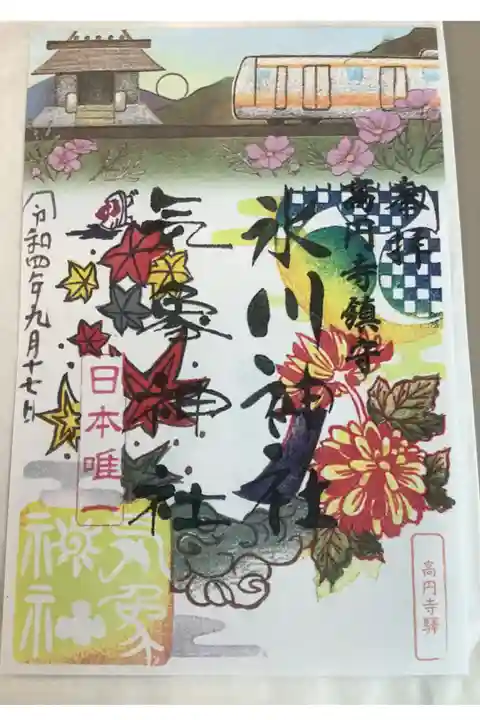 奉拝
高円寺鎮守
氷川神社
気象神社
日本唯一
令和四年九月十七日
気象
神社
高円寺驛